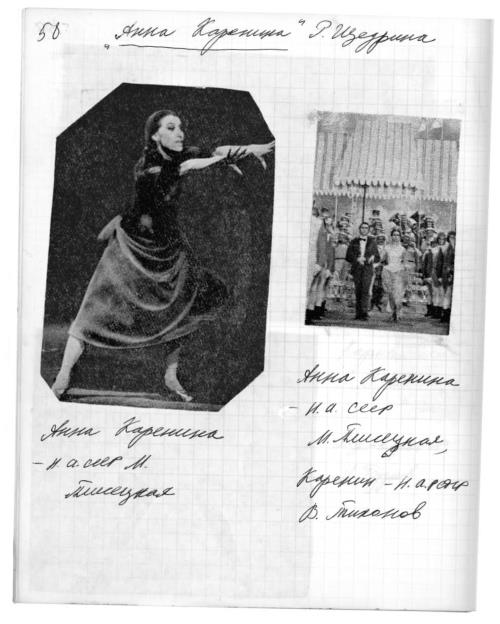 50
"Анна Каренина" Р. Щедрина
Анна Каренина
- н.а. ссср М.
Плисецкая
Анна Каренина
- н.а. ссср
М. Плисецкая,
Каренин - н.а.рсфср
В. Тихонов